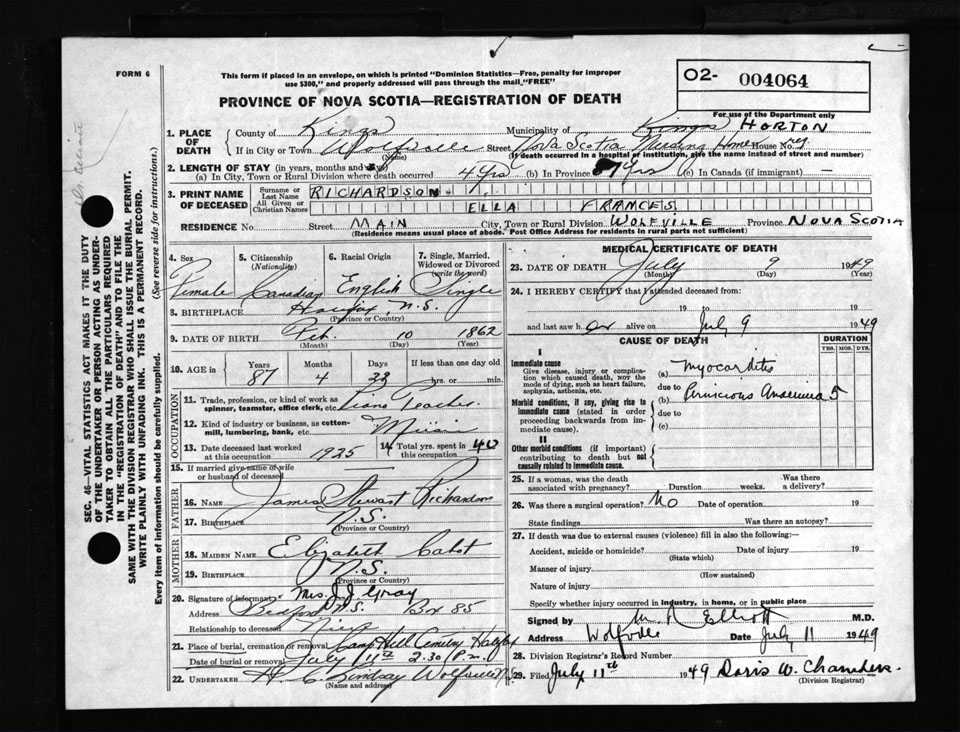 FORM 6
This form if placed in an envelope, on which is printed "Dominion Statistics—Free, penalty for improper
use $300," and properly addressed will pass through the mail "FREE"
PROVINCE OF NOVA SCOTIA—REGISTRATION OF DEATH
O2- 004064
For use of the Department only
1. PLACE OF DEATH
County of Kings Municipality of Kings HORTON
If in City or Town Wolfville Street Nova Scotia Nursing Home House No.
(Name) (If death occurred in a hospital or institution, give the name instead of street and number)
2. LENGTH OF STAY (in years, months and days)
(a) In City, Town or Rural Division where death occurred 4 Yrs (b) In Province 87 Yrs (c) In Canada (if immigrant) —
3. PRINT NAME OF DECEASED
Surname or Last Name RICHARDSON
All Given or Christian Names ELLA FRANCES
RESIDENCE No. Street MAIN City, Town or Rural Division WOLFVILLE Province NOVA SCOTIA
(Residence means usual place of abode. Post Office Address for residents in rural parts not sufficient)
4. Sex
Female
5. Citizenship (Nationality)
Canadian
6. Racial Origin
English
7. Single, Married, Widowed or Divorced (write the word)
Single
8. BIRTHPLACE Halifax, N.S.
(Province or Country)
9. DATE OF BIRTH Feb. 10 1862
(Month) (Day) (Year)
10. AGE in Years Months Days If less than one day old
87 4 hrs. or min.
OCCUPATION
11. Trade, profession, or kind of work as spinner, teamster, office clerk, etc. Piano Teacher
12. Kind of industry or business, as cotton-mill, lumbering, bank, etc. Music
13. Date deceased last worked at this occupation 1925
14. Total yrs. spent in this occupation 40
15. If married give name of wife or husband of deceased
FATHER
16. NAME James Stewart Richardson
17. BIRTHPLACE N.S.
(Province or Country)
MOTHER
18. MAIDEN NAME Elizabeth Cabot
19. BIRTHPLACE N.S.
(Province or Country)
20. Signature of informant Mrs. J. J. Gray
Address Bedford N.S. Box 85
Relationship to deceased Niece
21. Place of burial, cremation or removal Camp Hill Cemetery Halifax
Date of burial or removal July 11th 2.30 P.m.
22. UNDERTAKER H. C. Lindsay Wolfville N.S.
(Name and address)
MEDICAL CERTIFICATE OF DEATH
23. DATE OF DEATH July 9 1949
(Month) (Day) (Year)
24. I HEREBY CERTIFY that I attended deceased from:
19 to 19
and last saw her alive on July 9 1949
CAUSE OF DEATH
DURATION
YRS. MOS. DYS.
I
Immediate cause
Give disease, injury or complication which caused death, not the mode of dying, such as heart failure, asphyxia, asthenia, etc.
(a) Myocarditis
due to
Morbid conditions, if any, giving rise to immediate cause (stated in order proceeding backwards from immediate cause).
(b) Pernicious Anaemia 5
due to
(c)
II
Other morbid conditions (if important) contributing to death but not causally related to immediate cause.
25. If a woman, was the death associated with pregnancy? Duration weeks. Was there a delivery?
26. Was there a surgical operation? No Date of operation 19
State findings Was there an autopsy?
27. If death was due to external causes (violence) fill in also the following:—
Accident, suicide or homicide? Date of injury 19
(State which)
Manner of injury
(How sustained)
Nature of injury
Specify whether injury occurred in industry, in home, or in public place
Signed by M R Elliott M.D.
Address Wolfville Date July 11 1949
28. Division Registrar's Record Number
29. Filed July 11th 1949 Doris W. Chambers.
(Division Registrar)
SEC. 46—VITAL STATISTICS ACT MAKES IT THE DUTY
OF THE UNDERTAKER OR PERSON ACTING AS UNDER-
TAKER TO OBTAIN ALL THE PARTICULARS REQUIRED
IN THE "REGISTRATION OF DEATH" AND TO FILE THE
SAME WITH THE DIVISION REGISTRAR WHO SHALL ISSUE THE BURIAL PERMIT.
WRITE PLAINLY WITH UNFADING INK. THIS IS A PERMANENT RECORD.
Every item of information should be carefully supplied. (See reverse side for instructions.)